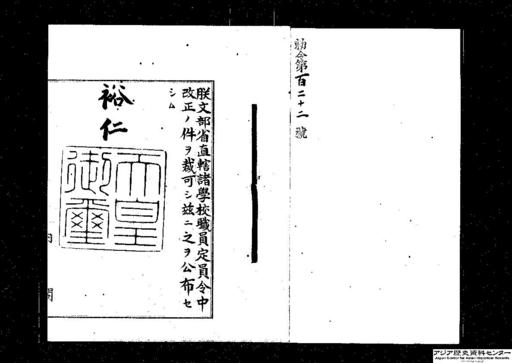 勅令第百二十二號
朕文部省直轄諸學校職員定員令中
改正ノ件ヲ裁可シ茲ニ之ヲ公布セ
シム
裕仁
天皇
御璽
アジア歴史資料センター
Japan Center for Asian Historical Records